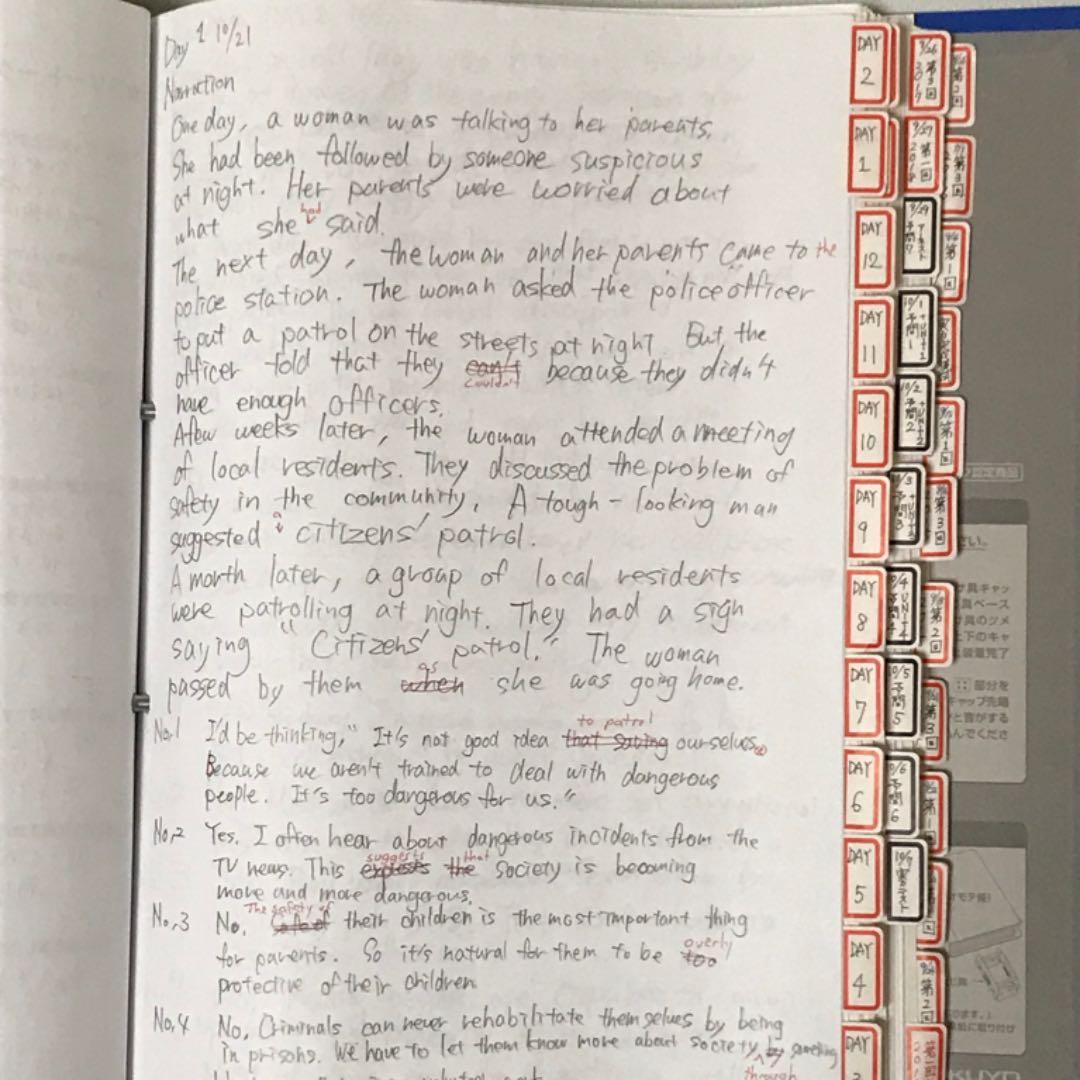 Day 1 10/21
Narration
One day, a woman was talking to her parents.
She had been followed by someone suspicious
at night. Her parents were worried about
what she had said.
The next day, the woman and her parents came to the
police station. The woman asked the police officer
to put a patrol on the streets at night. But the
officer told that they can't couldn't because they didn't
have enough officers.
A few weeks later, the woman attended a meeting
of local residents. They discussed the problem of
safety in the community. A tough-looking man
suggested a citizens' patrol.
A month later, a group of local residents
were patrolling at night. They had a sign
saying "Citizens' patrol." The woman
passed by them when as she was going home.
No.1 I'd be thinking," It's not good idea that saving to patrol ourselves.
Because we aren't trained to deal with dangerous
people. It's too dangerous for us."
No.2 Yes. I often hear about dangerous incidents from the
TV news. This suggests the that society is becoming
more and more dangerous.
No.3 No. The safety of their children is the most important thing
for parents. So it's natural for them to be too overly
protective of their children
No.4 No. Criminals can never rehabilitate themselves by being
in prisons. We have to let them know more about society by through something
DAY 2
DAY 1
DAY 12
DAY 11
DAY 10
DAY 9
DAY 8
DAY 7
DAY 6
DAY 5
DAY 4
DAY 3
9/26 第3回
9/27 第一回
9/29
10/1 予問1
10/2 予問2
10/3 予問3
10/4 予問4 UNIT4
10/5 予問5
10/6 予問6
第2回
第3回
第1回
さい。
部分を
キャップ先端
と音がする
んでくださ